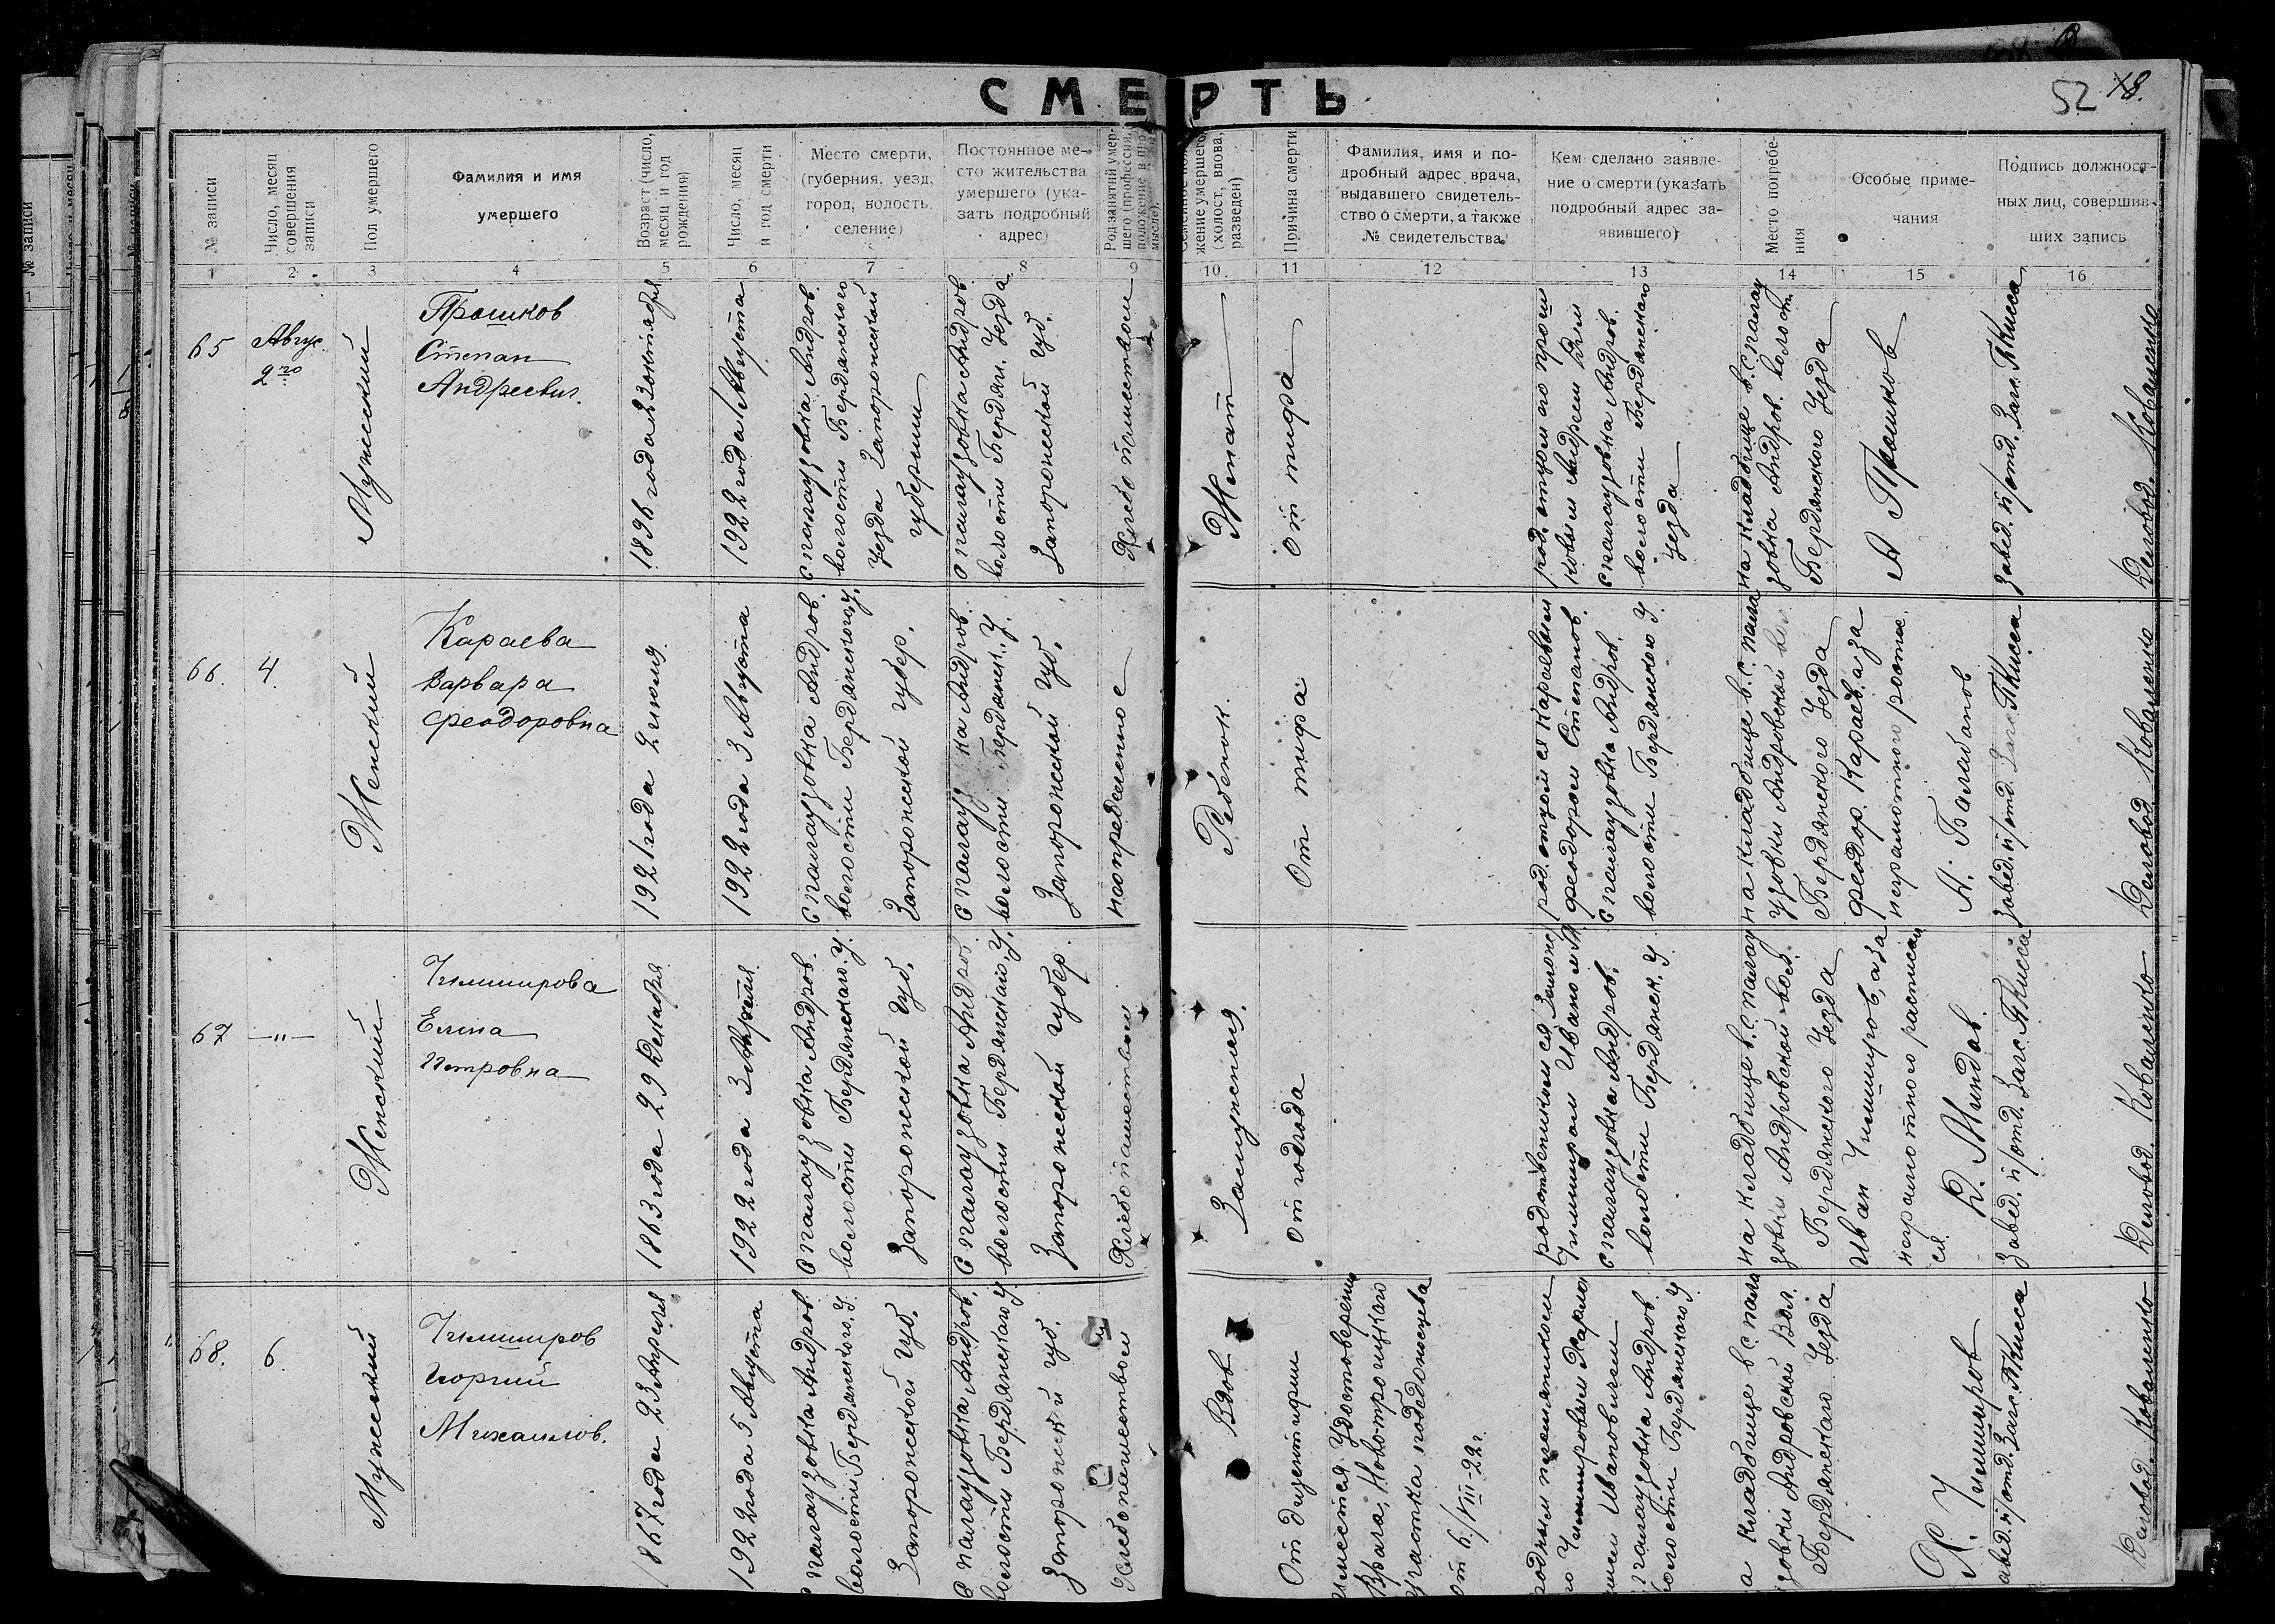 СМЕРТЬ
52 18.
№ записи
Число, месяц совершения записи
Пол умершего
Фамилия и имя
умершего
Возраст (число, месяц и год рождения)
Число, месяц и год смерти
Место смерти,
(губерния, уезд,
город, волость,
селение)
Постоянное ме-
сто жительства
умершего (ука-
зать подробный
адрес)
Причина смерти
Фамилия, имя и по-
дробный адрес врача,
выдавшего свидетель-
ство о смерти, а также
№ свидетельства
Кем сделано заявле-
ние о смерти (указать
подробный адрес за-
явившего)
Место погребе-
ния
Особые приме-
чания
Подпись должност-
ных лиц, совершив-
ших запись
1 2 3 4 5 6 7 8 9 10 11 12 13 14 15 16
65
Авгус.
2го
Мужеский
Прошков
Степан
Андреевич.
1896 года 22 октября
1922 года 1 Августа
с палаузовка Андров.
волости Бердянского
Уезда Запорожской
губернии
с палаузовка Андров.
волости Бердян. Уезда
Запорожской губ.
Хлебопашеством
Женат
от тифа
род. отцом его прош
ковым Андреем
с палаузовка Андров.
волости Бердянского
Уезда
на кладбище в с. палау
зовка Андров. волости
Бердянского Уезда
А Прошков
Завед. п/отд. Загс. Ткисса
Деловод. Коваленко
66.
4.
Женский
Караева
Варвара
Феодоровна
1921 года 2 июля
1922 года 3 Августа
с палаузовка Андров.
волости Бердянского у.
Запорожской губер.
с палауз ка Андров.
волости Бердянск. У.
Запорожской губ.
неопределенное
Ребенок.
от тифа
род. отцом ея Караевым
Феодором Степанов.
с палаузовка Андров.
волости Бердянского У.
на кладбище в с. пала
узовки Андровской вол
Бердянского Уезда
Феодор. Караев. а за
неграмотного роспис.
А. Балабанов
Завед. п/отд. Загс Ткисса
Деловод. Коваленко
67
—"—
Женский
Чимширова
Елена
Петровна
1863 года 29 Декабря
1922 года 3 Апреля
с палаузовка Андров.
волости Бердянскаго. У.
Запорожской губ.
с палаузовка Андров.
волости Бердянскаго, У,
Запорожской губер.
Хлебопашеством
Замужняя.
от голода
родственником ея
Чимширом Иваном М.
с палаузовка Андров.
волости Бердянск. У.
на кладбище в с. палау
зовки Андровской вол.
Бердянского Уезда
Иван Чимширов, а за
неграмотного расписал
ся
К. Миндов.
Завед. п/отд. Загс Ткисса
Деловод. Коваленко
68.
6.
Мужеский
Чимширов
Георгий
Михаилов.
1867 года 23 Апреля
1922 года 5 Августа
с палаузовка Андров.
волости Бердянского, У.
Запорожской губ.
с палаузовка Андров,
волости Бердянскаго У.
Запорожск й губ.
Хлебопашеством
Вдов
От дизентирии
имеется Удостоверение
Врача, Новотроицкаго
Участка победоносцева
от 6/VIII-22 г.
родным племянником
го Чимшировым Харлам
пием Ивановичем
с палаузовка Андров.
волости Бердянскаго У.
а кладбище в с. пала
узовки Андровской Вол.
Бердянскаго Уезда
Х. Чимширов
авед. п/отд. Загс. Ткисса
Деловод. Коваленко